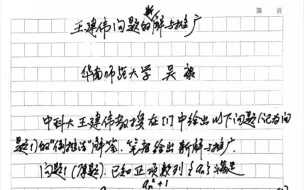 第 页
王建伟问题的新解与推广
华南师范大学 吴康
中科大王建伟教授在[1]中给出以下问题(记为问
题1)的“倒推法”解答.笔者给出新解与推广
问题1(原题).已知正项数列{aₙ}满足
aₙ²+1